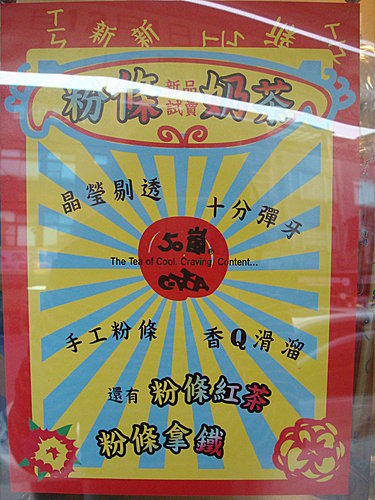 新新 新
粉條 新品試賣 奶茶
晶瑩剔透
十分彈牙
50嵐®
The Tea of Cool. Craving, Content...
手工粉條
香Q滑溜
還有 粉條紅茶
粉條拿鐵